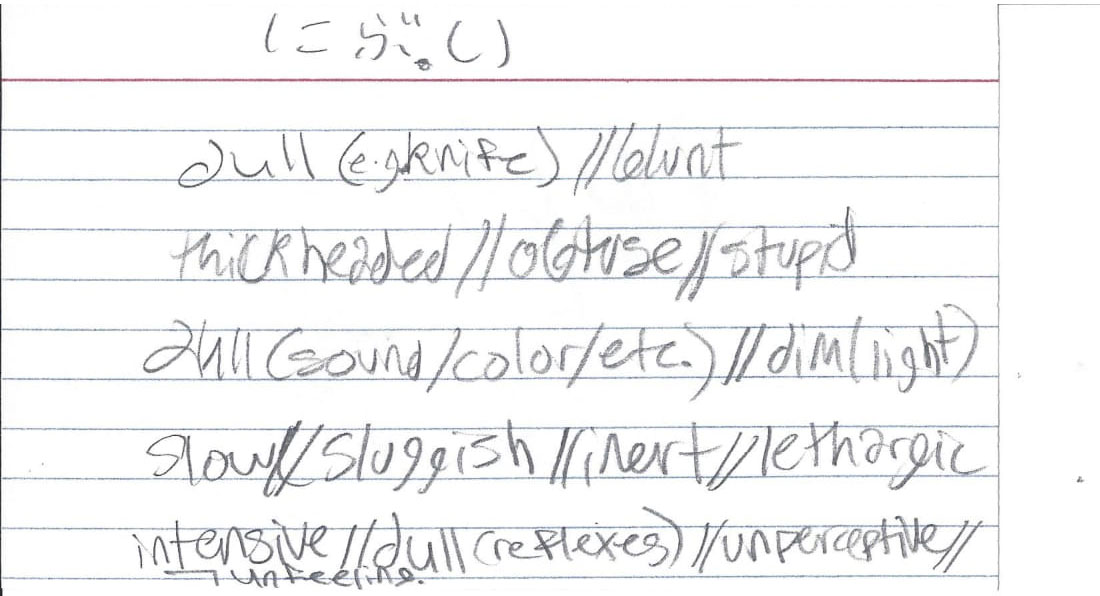 にぶ.い
dull (e.g knife) // blunt
thickheaded // obtuse // stupid
dull (sound/color/etc.) // dim (light)
slow // sluggish // inert // lethargic
intensive // dull (reflexes) // unperceptive //
→ unfeeling.